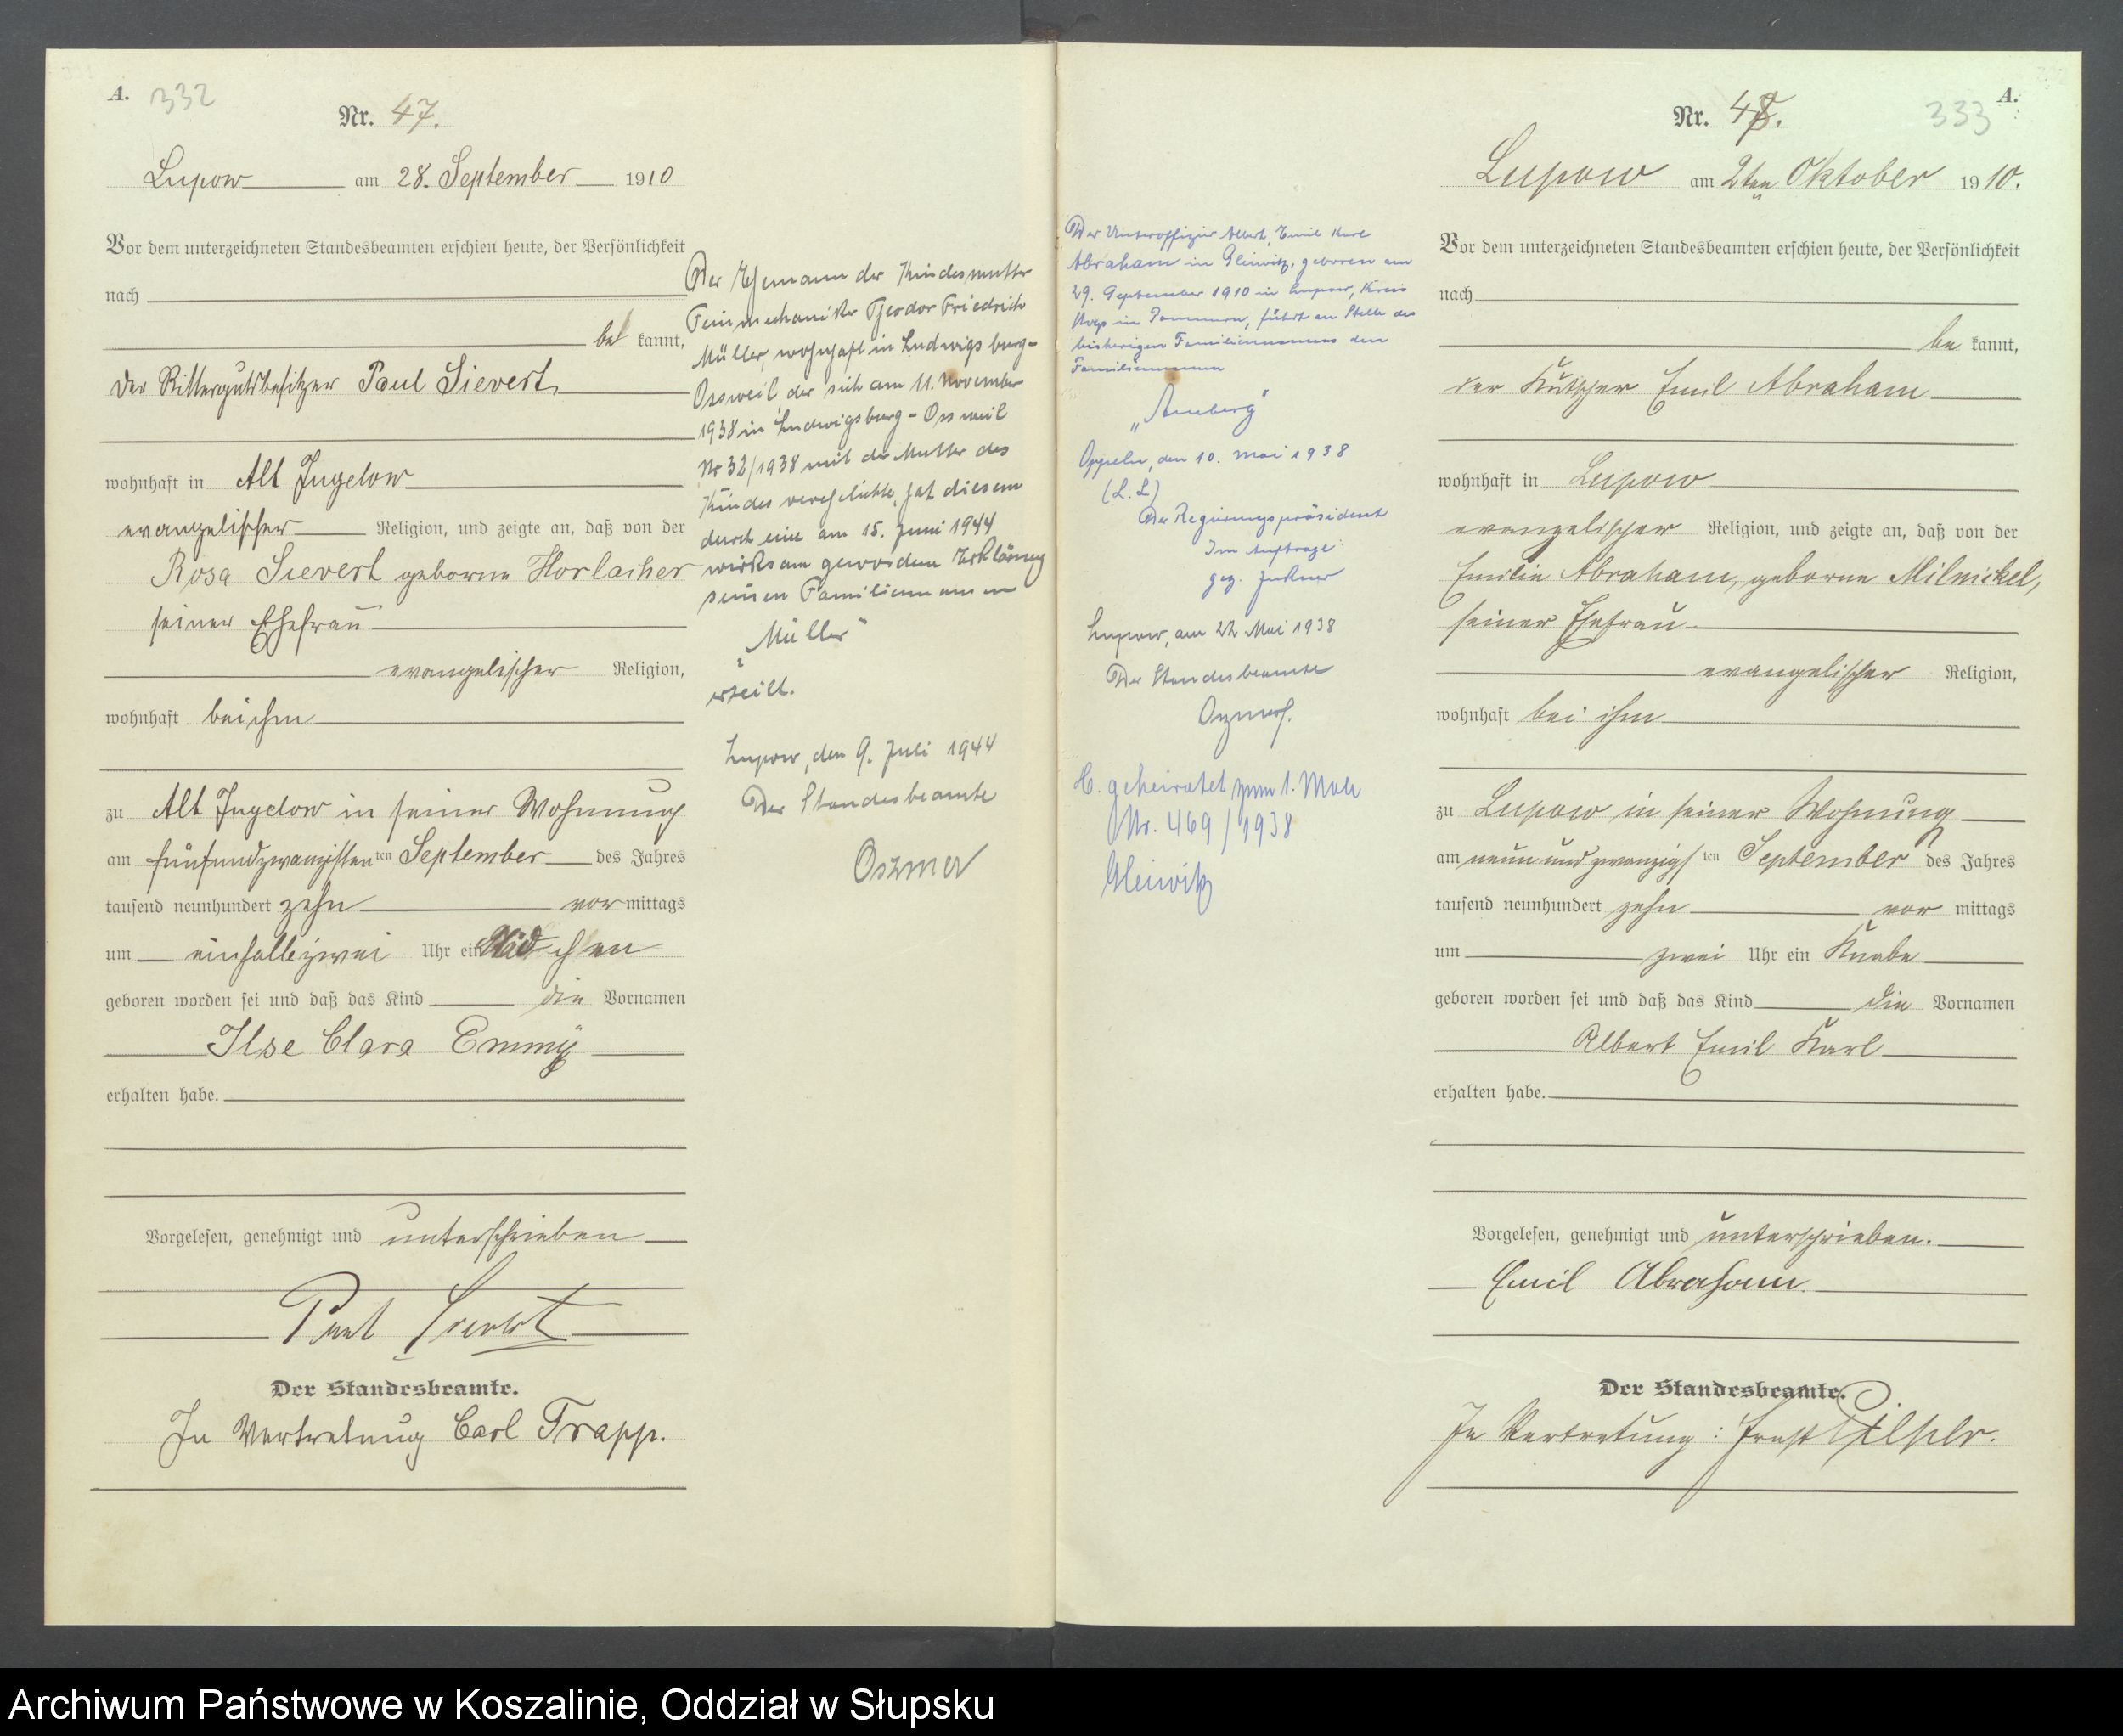 A. 332
Nr. 47.
Lupow am 28. September 1910
Vor dem unterzeichneten Standesbeamten erschien heute, der Persönlichkeit
nach
be kannt,
der Rittergutsbesitzer Paul Sievert
wohnhaft in Alt Jugelow
evangelischer Religion, und zeigte an, daß von der
Rosa Sievert geborne Horlacher
seiner Ehefrau
evangelischer Religion,
wohnhaft bei ihm
zu Alt Jugelow in seiner Wohnung
am fünfundzwanzigsten ten September des Jahres
tausend neunhundert zehn vor mittags
um einhalbzwei Uhr ein Mädchen
geboren worden sei und daß das Kind die Vornamen
Ilse Clara Emmy
erhalten habe.
Vorgelesen, genehmigt und unterschrieben
Paul Sievert
Der Standesbeamte.
In Vertretung Carl Trapp.
Der Ehemann der Kindesmutter
Feinmechaniker Theodor Friedrich
Müller, wohnhaft in Ludwigsburg-
Ossweil, der sich am 11. November
1938 in Ludwigsburg-Ossweil
Nr 32/1938 mit der Mutter des
Kindes verehelichte, hat diesem
durch eine am 15. Juni 1944
wirksam gewordene Erklärung
seinen Familiennamen
„Müller"
erteilt.
Lupow, den 9. Juli 1944
Der Standesbeamte
A.
Nr. 48. 333
Lupow am 2ten Oktober 1910.
Vor dem unterzeichneten Standesbeamten erschien heute, der Persönlichkeit
nach
be kannt,
der Kutscher Emil Abraham
wohnhaft in Lupow
evangelischer Religion, und zeigte an, daß von der
Emilie Abraham, geborne Milnickel,
seiner Ehefrau
evangelischer Religion,
wohnhaft bei ihm
zu Lupow in seiner Wohnung
am neunundzwanzigs ten September des Jahres
tausend neunhundert zehn vor mittags
um zwei Uhr ein Knabe
geboren worden sei und daß das Kind die Vornamen
Albert Emil Karl
erhalten habe.
Vorgelesen, genehmigt und unterschrieben.
Emil Abraham.
Der Standesbeamte.
In Vertretung: Ernst
Der Unteroffizier Albert, Emil Karl
Abraham in Gleiwitz, geboren am
29. September 1910 in Lupow, Kreis
Stolp in Pommern, führt an Stelle des
bisherigen Familiennamens den
Familiennamen
„Amberg"
Oppeln, den 10. Mai 1938
(L. S.)
Der Regierungspräsident
Im Auftrage:
gez.
Lupow, am 22 Mai 1938
Der Standesbeamte
H. geheiratet zum 1. Male
Nr. 469/1938
Gleiwitz
Archiwum Państwowe w Koszalinie, Oddział w Słupsku